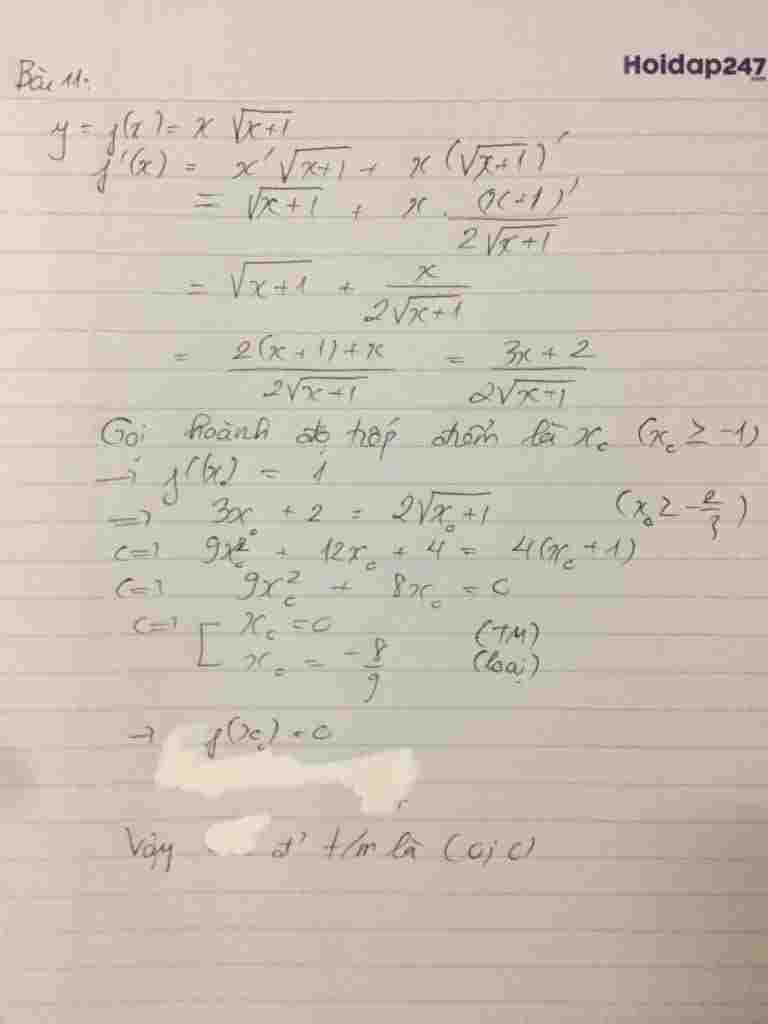 Hoidap247
Bài 11:
y = f(x) = x √(x+1)
f'(x) = x' √(x+1) + x (√(x+1))'
= √(x+1) + x · (x+1)' / 2√(x+1)
= √(x+1) + x / 2√(x+1)
= (2(x+1)+x) / 2√(x+1) = (3x+2) / 2√(x+1)
Gọi hoành độ tiếp điểm là x₀ (x₀ ≥ -1)
→ f'(x₀) = 1
=> 3x₀ + 2 = 2√(x₀+1) (x₀ ≥ -2/3)
<=> 9x₀² + 12x₀ + 4 = 4(x₀+1)
<=> 9x₀² + 8x₀ = 0
<=> [ x₀ = 0 (TM)
x₀ = -8/9 (loại)
→ f(x₀) = 0
Vậy đ' t/m là (0; 0)